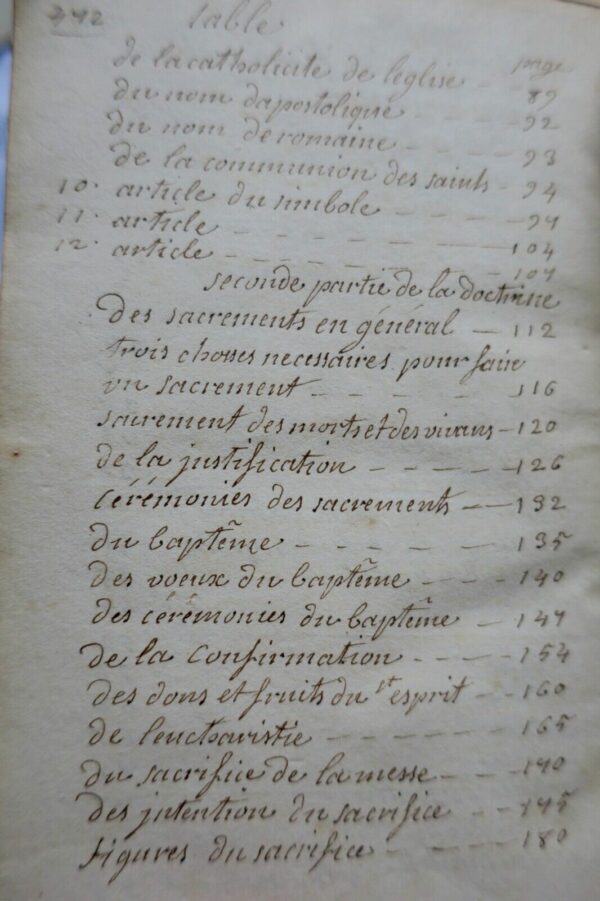 342 table
page
de la catholicite de leglise - - 89
du nom dapostolique - - - 92
du nom de romaine - - - - 93
de la communion des saints - 94
10. article du simbole - - - - 97
11. article - - - - - - - 104
12. article - - - - - - - 107
seconde partie de la doctrine
des sacrements en général - 112
trois choses necessaires pour faire
un sacrement - - - - - 116
sacrement des morts et des vivans - 120
de la justification - - - - 126
cérémonies des sacrements - - 132
du baptême - - - - - - 135
des voeux du baptême - - - - 140
des cérémonies du baptême - - 147
de la confirmation - - - - 154
des dons et fruits du st esprit - - 160
de leucharistie - - - - - - 165
du sacrifice de la messe - - - 170
des intention du sacrifice - - - 175
figures du sacrifice - - - - - 180